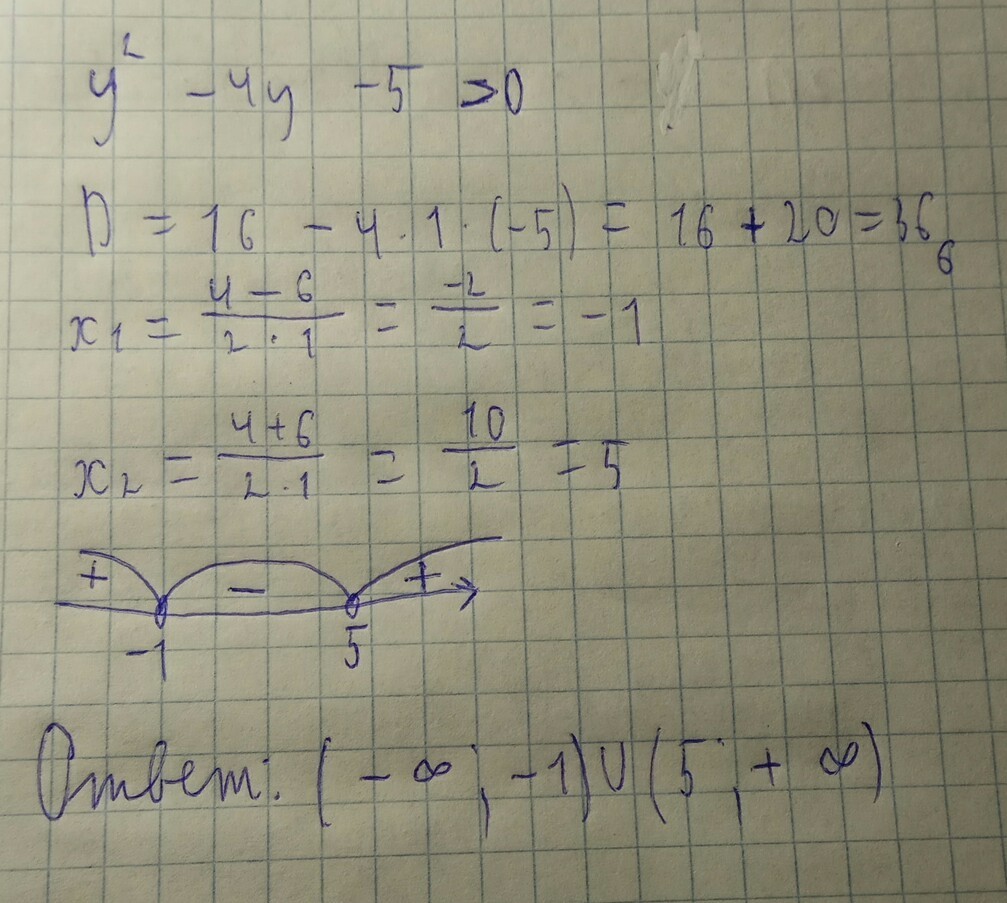 y² - 4y - 5 > 0
D = 16 - 4 · 1 · (-5) = 16 + 20 = 36 6
x₁ = (4 - 6)/(2 · 1) = -2/2 = -1
x₂ = (4 + 6)/(2 · 1) = 10/2 = 5
+ - +
-1 5
Ответ: (-∞; -1) ∪ (5; +∞)